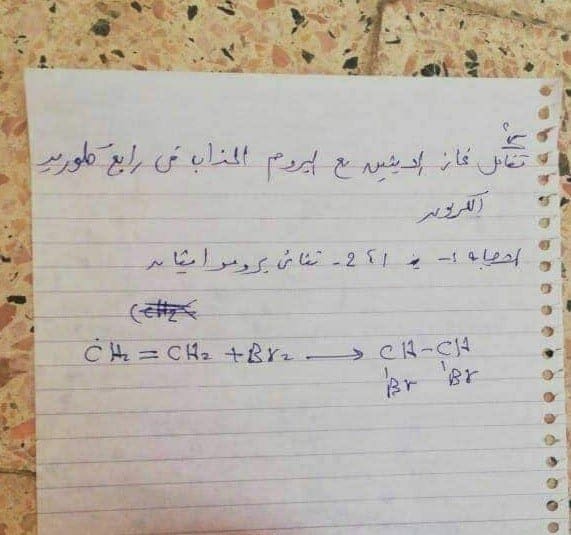 س؟
تفاعل غاز الاثيلين مع البروم المذاب في رابع كلوريد
الكربون
الاجابة 1- 1، 2- ثنائي برومو ايثان
CH2 = CH2 + Br2 ⟶ CH-CH
Br Br